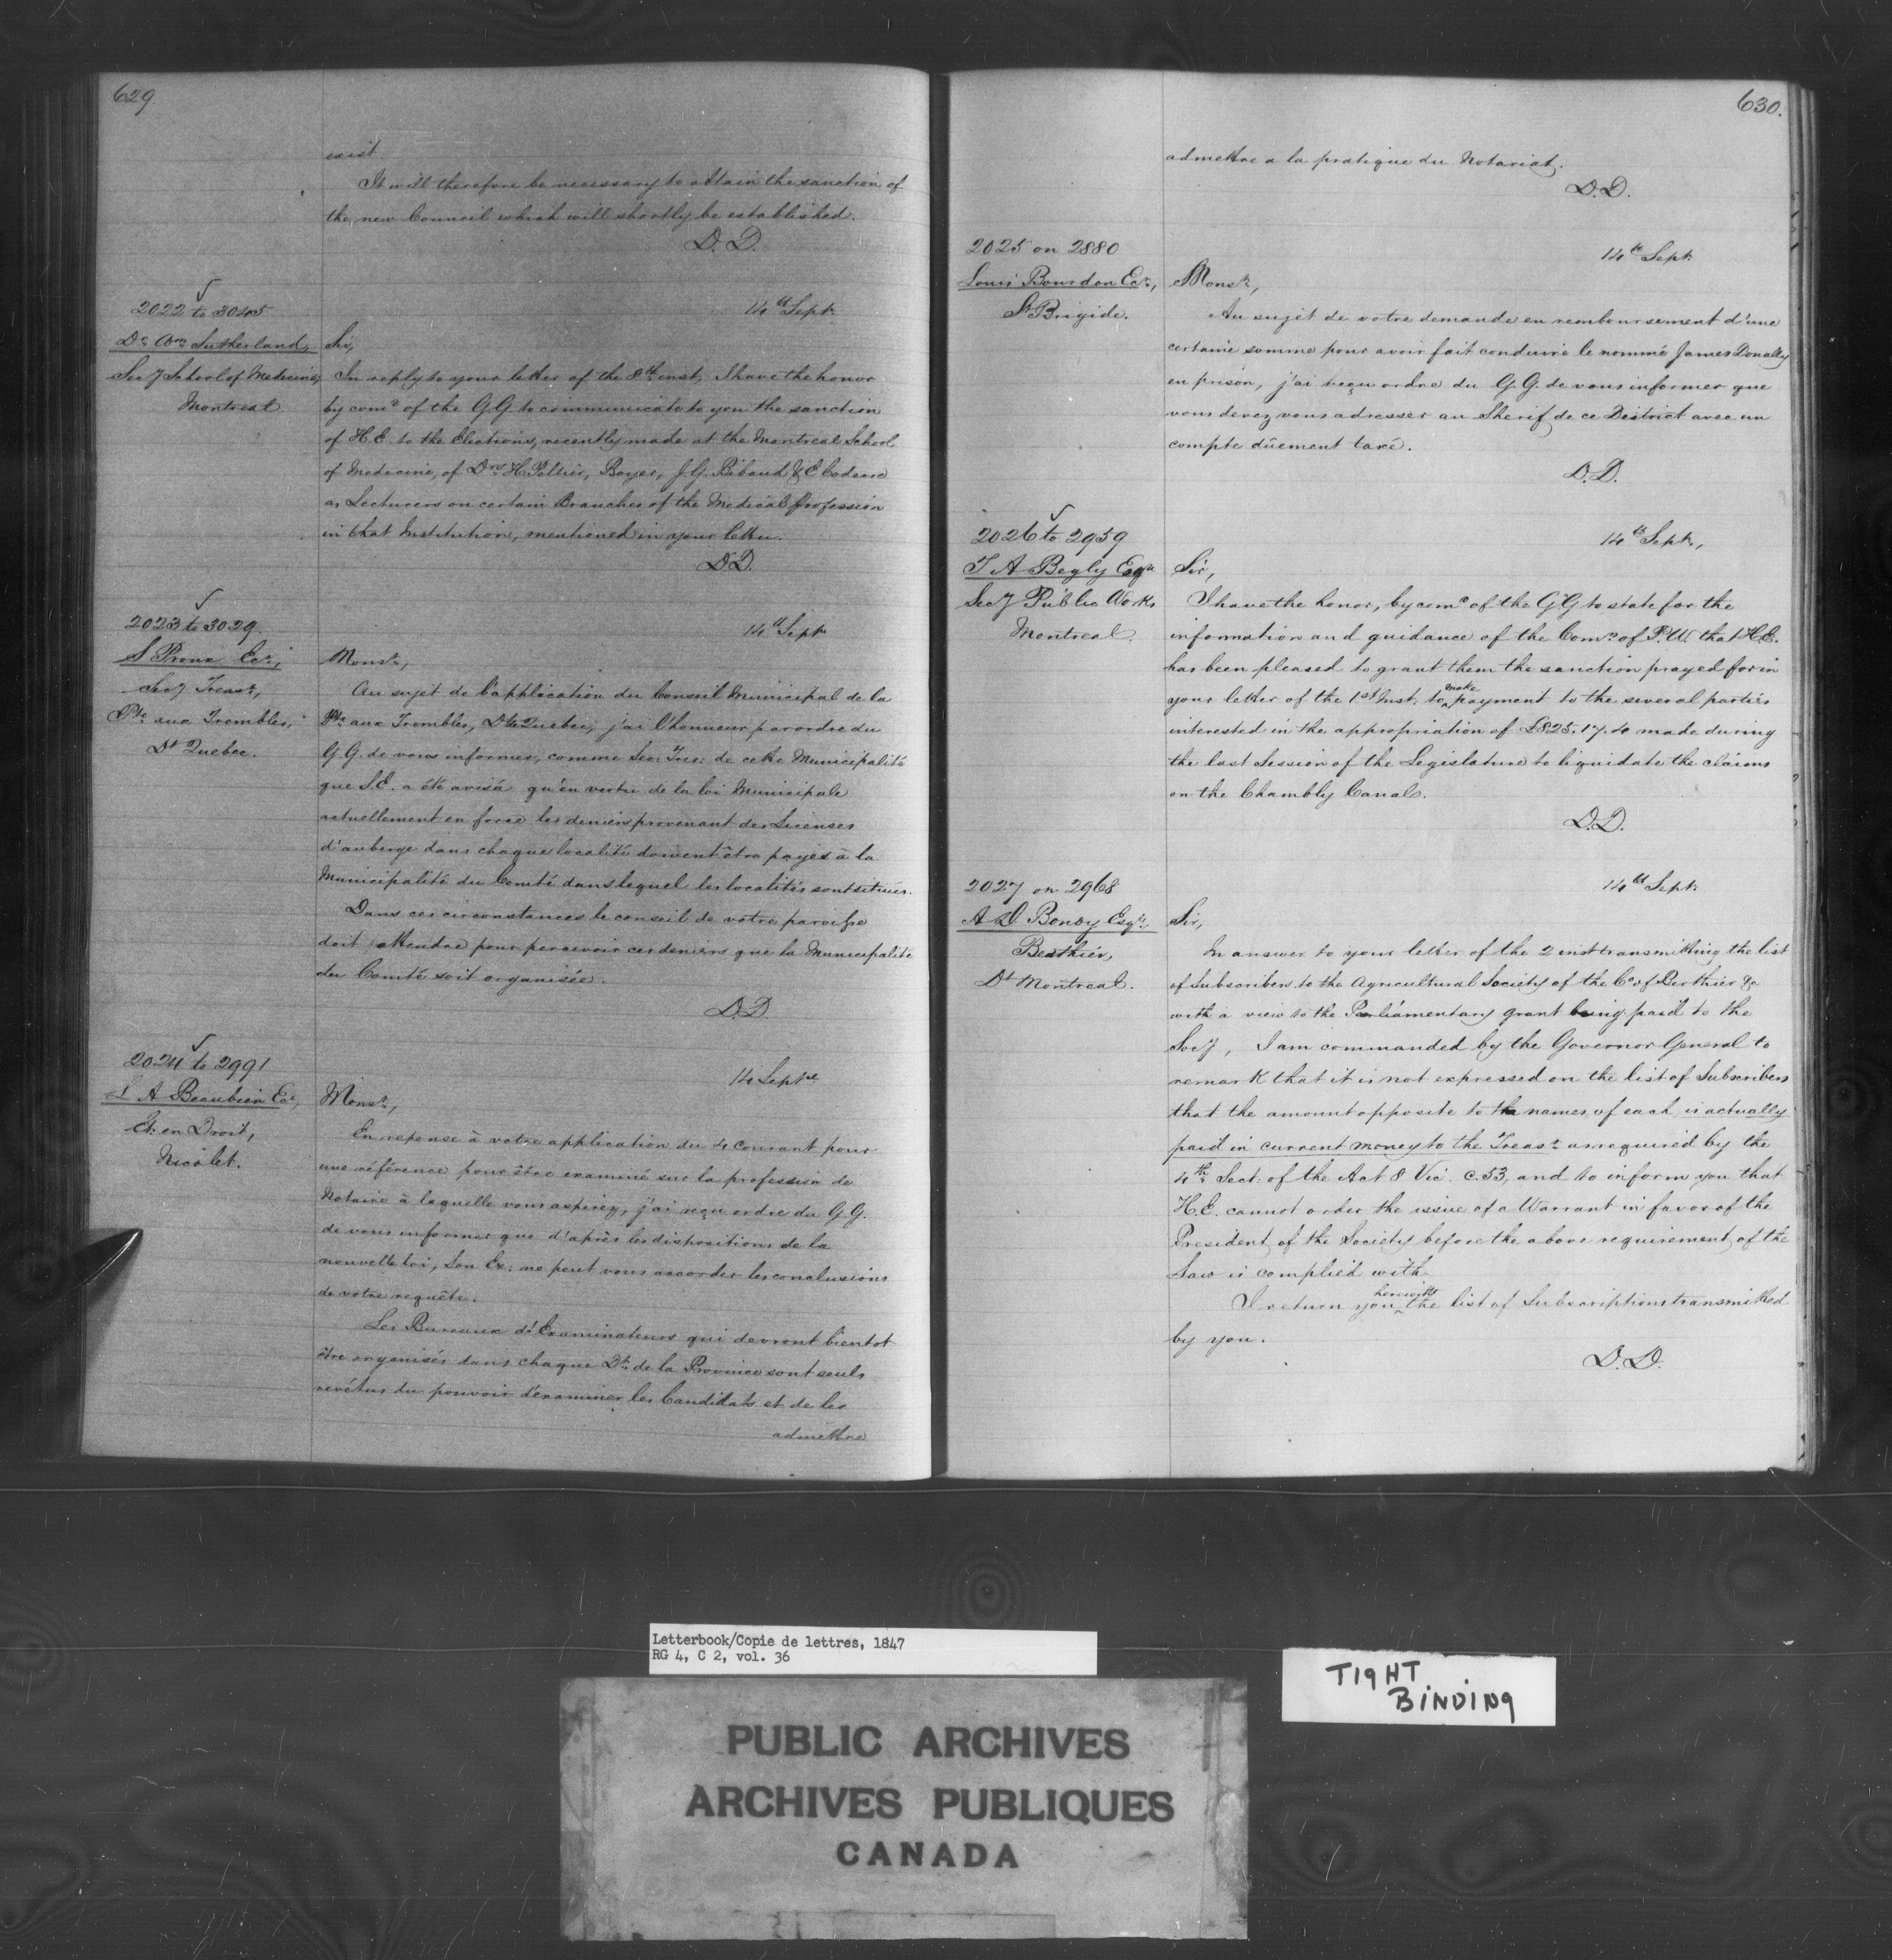 629.
exist.
It will therefore be necessary to obtain the sanction of
the new Council which will shortly be established.
D.D.
2022 to 3045
14th Sept.
Dr. Wm Sutherland,
Secy School of Medecine,
Montreal
Sir,
In reply to your letter of the 8th inst, I have the honor
by comd of the G.G. to communicate to you the sanction
of H.E. to the Elections, recently made at the Montreal School
of Medecine, of Drs H. Peltier, Boyer, J.G. Bibaud & E Coderre
as Lecturers on certain Branches of the Medical Profession
in that Institution, mentioned in your letter.
D.D.
2023 to 3029.
14th Sept
S Proux Ecr.,
Secy Treasr,
Pte aux Trembles,
Dt Quebec.
Monsr,
Au sujet de l'application du Conseil Municipal de la
Pte aux Trembles, Dt Quebec, j'ai l'honneur par ordre du
G.G. de vous informer, comme Sec: Tres: de cette Municipalité
que S.E. a été avisé qu'en vertu de la loi Municipale
actuellement en force les deniers provenant des Licenses
d'auberge dans chaque localité doivent être payés à la
Municipalité du Comté dans lequel les localités sont situées.
Dans ces circonstances le conseil de votre paroisse
doit attendre pour percevoir ces deniers que la Municipalité
du Comté soit organisée.
D.D.
2024 to 2991
14 Septe
L A Beaubien Ecr,
Et: en Droit,
Nicolet.
Monsr,
En reponse à votre application du 4 courant pour
une référence pour être examiné sur la profession de
Notaire à laquelle vous aspirez, j'ai reçu ordre du G.G.
de vous informer que d'après les dispositions de la
nouvelle loi, Son Ex: ne peut vous accorder les conclusions
de votre requête.
Les Bureaux d'Examinateurs qui devront bientot
être organisés dans chaque Dt de la Province sont seuls
revêtus du pouvoir d'examiner les Candidats et de les
admettre
630.
admettre a la pratique du Notariat.
D.D.
2025 on 2880
14th Sept.
Louis Bourdon Ecr.,
St Brigide.
Monsr,
Au sujet de votre demande en remboursement d'une
certaine somme pour avoir fait conduire le nommé James Donelly
en prison, j'ai reçu ordre du G.G. de vous informer que
vous devez vous adresser au Sherif de ce District avec un
compte dûement taxé.
D.D.
2026 to 2959
14th Sept.,
T A Begly Esqr
Secy Public Works
Montreal.
Sir,
I have the honor, by comd of the G.G to state for the
information and guidance of the Comrs of P.W. that H.E.
has been pleased to grant them the sanction prayed for in
your letter of the 1st Inst. to make payment to the several parties
interested in the appropriation of £825.17.4 made during
the last Session of the Legislature to liquidate the claims
on the Chambly Canal.
D.D.
2027 on 2968
14th Sept.
A D. Bondy Esqr.
Berthier,
Dt Montreal.
Sir,
In answer to your letter of the 2 inst transmitting the list
of Subscribers to the Agricultural Society of the Co of Berthier &c
with a view to the Parliamentary grant being paid to the
Socy, I am commanded by the Governor General to
remark that it is not expressed on the list of Subscribers
that the amount opposite to the names of each is actually
paid in current money to the Treasr as required by the
4th Sect. of the Act 8 Vic. c.53, and to inform you that
H.E. cannot order the issue of a Warrant in favor of the
President of the Society before the above requirement of the
Law is complied with.
I return you herewith the list of Subscriptions transmitted
by you.
D.D.
Letterbook/Copie de lettres, 1847
RG 4, C 2, vol. 36
TIGHT
BINDING
PUBLIC ARCHIVES
ARCHIVES PUBLIQUES
CANADA